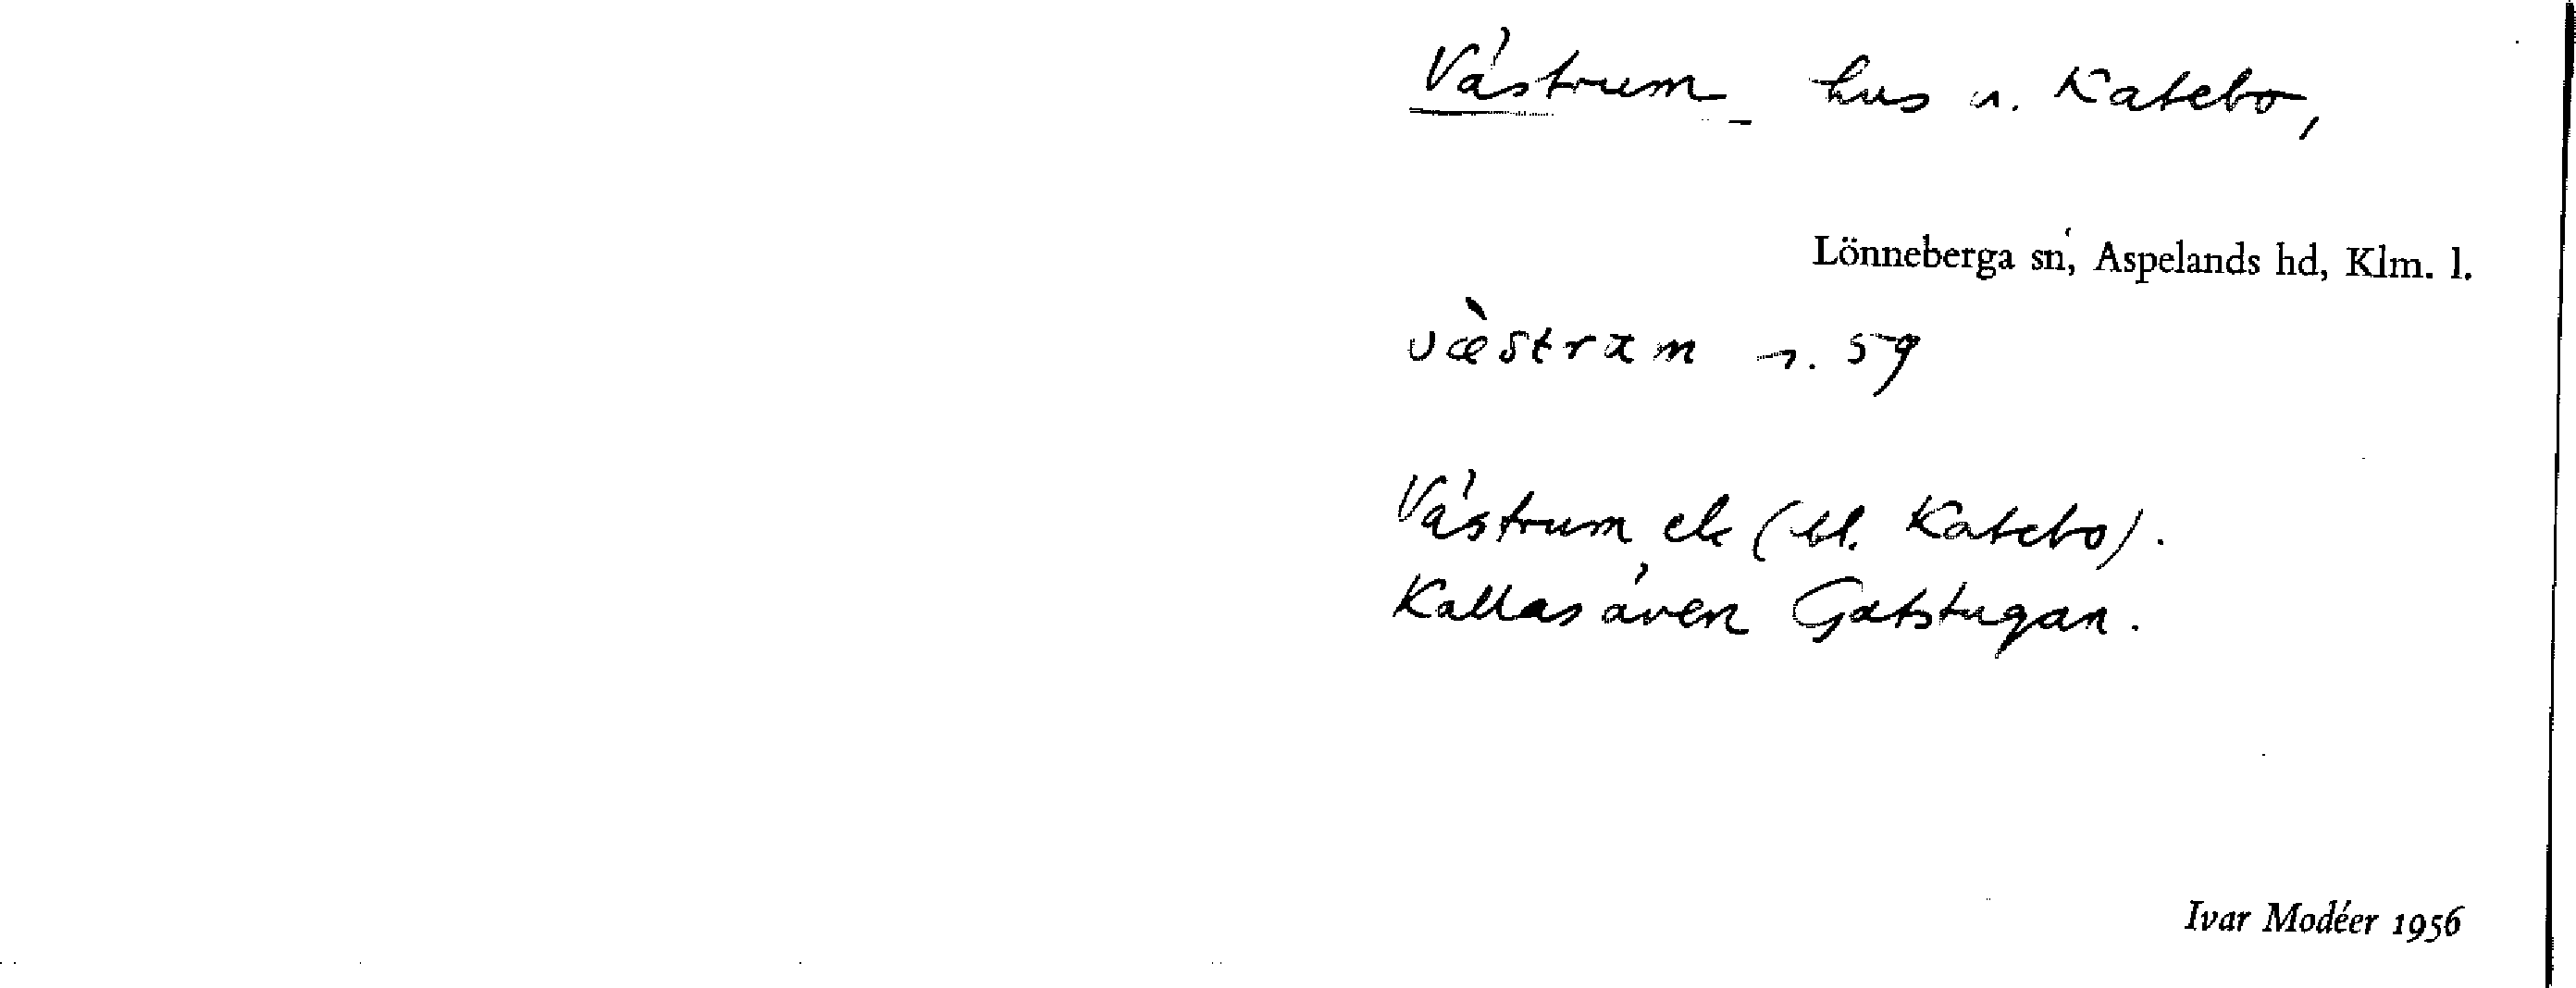 Västrum hus u. Katebo,
Lönneberga sn, Aspelands hd, Klm. l.
væ̀stram n. 59
Västrum ek (bl. Katebo).
Kallas även Gatstugan.
Ivar Modéer 1956